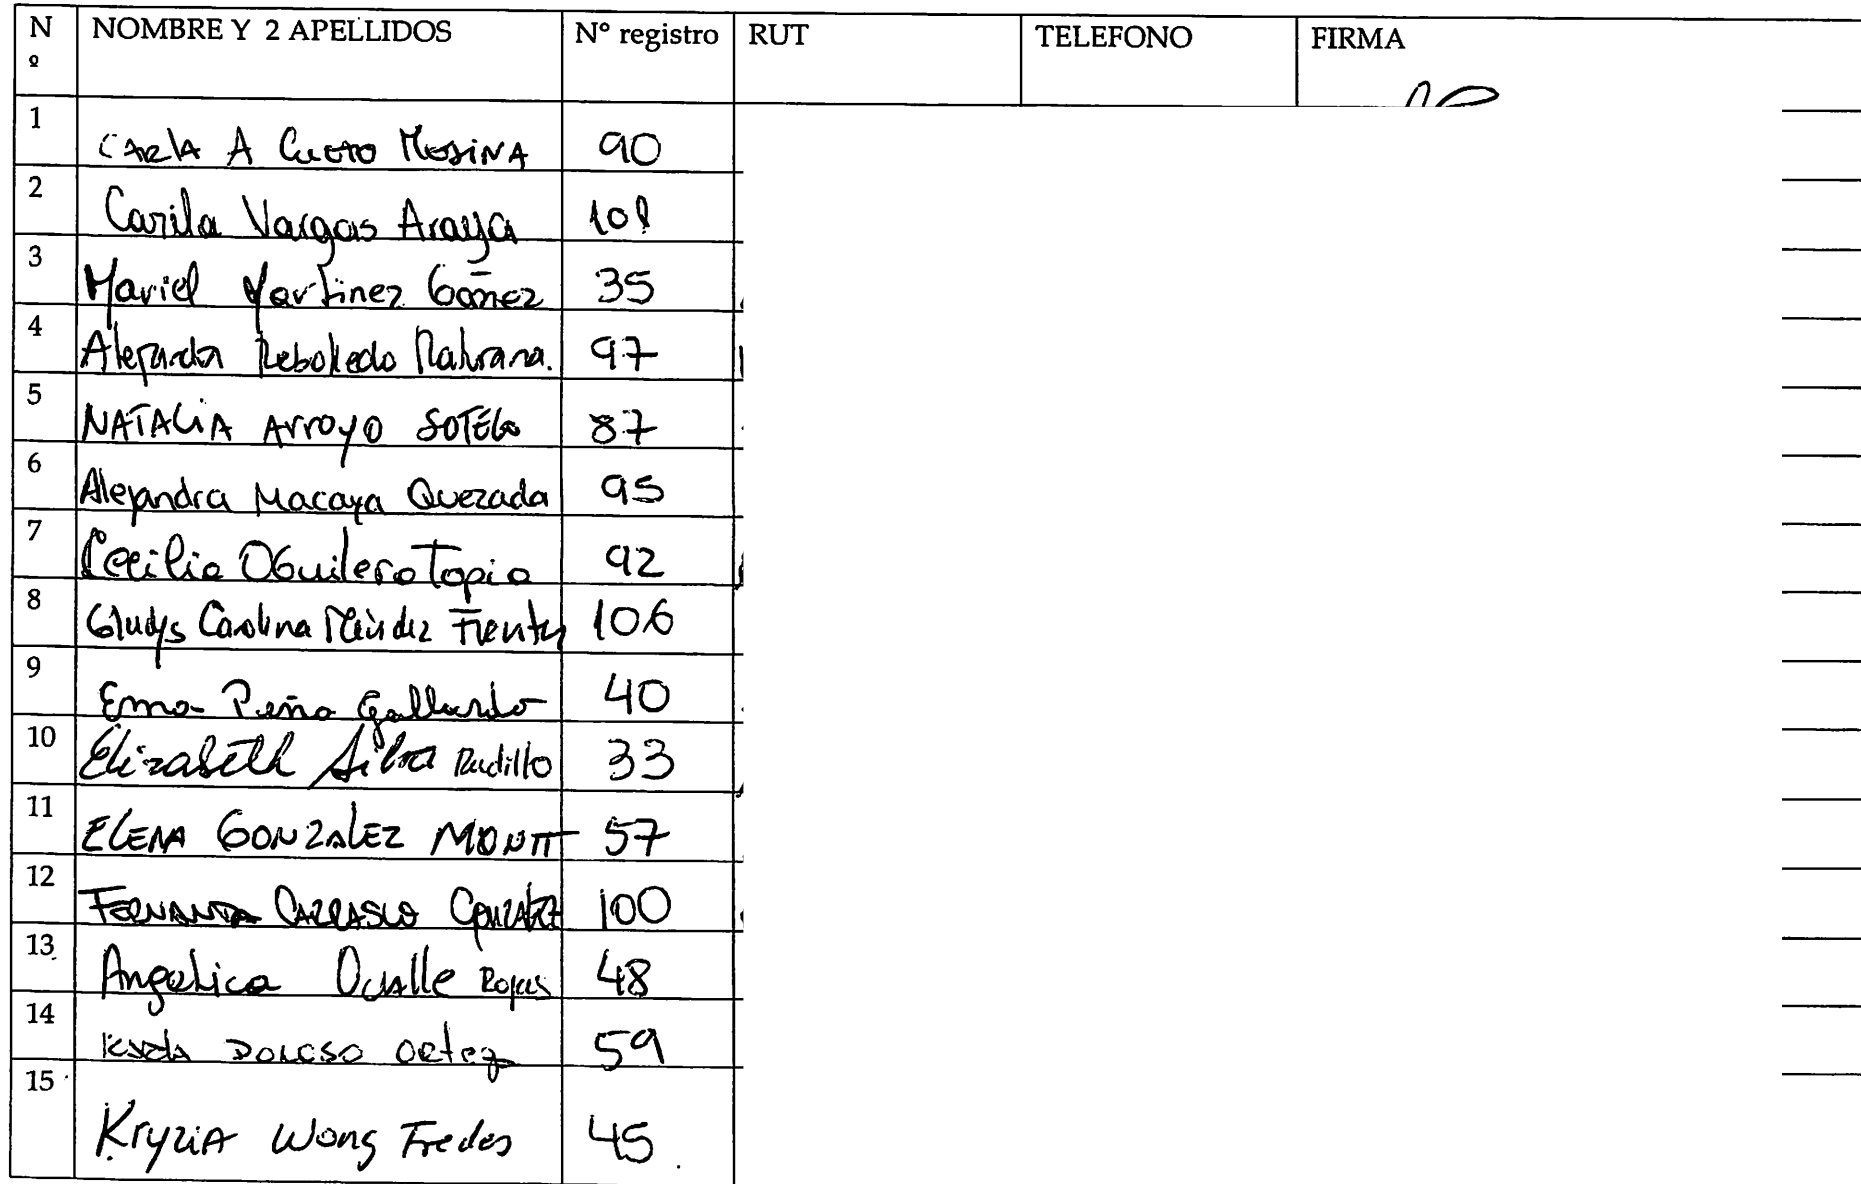 Nº NOMBRE Y 2 APELLIDOS N° registro RUT TELEFONO FIRMA
1 CARLA A Cueto MESINA 90
2 Carila Vargas Araya 108
3 Mariel Martinez Gómez 35
4 Alejandra Rebolledo 97
5 NATALIA Arroyo SOTELO 87
6 Alejandra Macaya Quezada 95
7 Cecilia Aguilera Tapia 92
8 Gladys Carolina Méndez 106
9 Ema Peña Gallardo 40
10 Elizabeth Silva 33
11 ELENA GONZALEZ MONTT 57
12 FERNANDA CARRASCO GONZALEZ 100
13 Angelica Ovalle Rojas 48
14 Karla DONOSO Ortega 59
15 KryziA Wong Fredes 45